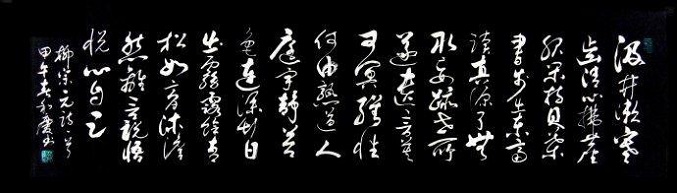 汲井漱寒
齿清心拂尘
服闲持贝叶
书步出东斋
读真源了無
取妄跡世所
逐遗言冀
可冥繕性
何由熟道人
庭宇静苔
色连深竹日
出霧露餘青
松如膏沐澹
然離言說悟
悦心自足
柳宗元詩一首
甲午春和慶書